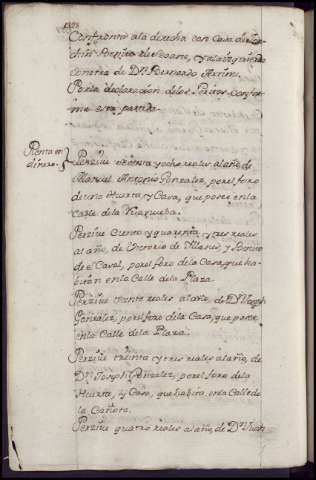 Confrontto ala derecha con Casa de
Benito de Seoane, y ala izquierda
con otra de Dn. Bernardo
Por la declaracion delos Peritos confor-
ma esta partida.
Renta en
dinero.
Percive treinta y ocho reales al año de
Manuel Antonio Gonzalez, por el foro
de una Huerta, y Casa, que posee en la
Calle de la Viaxnueba.
Percive Ciento y quarenta, y tres reales
al año, de Victorio de Blasis, y Benito
de el Casal, por el foro de la Casa, que ha-
bitan en la Calle de la Plaza.
Percive Veinte reales al año, de Dn. Joseph
Gonzalez, por el foro de la Casa, que posee
en la Calle de la Plaza.
Percive treinta y tres reales al año, de
Dn. Joseph Gonzalez, por el foro de la
Huerta, y Casa, que habita en la Calle de
la Cañota.
Percive quatro reales al año, de Dn. Juan